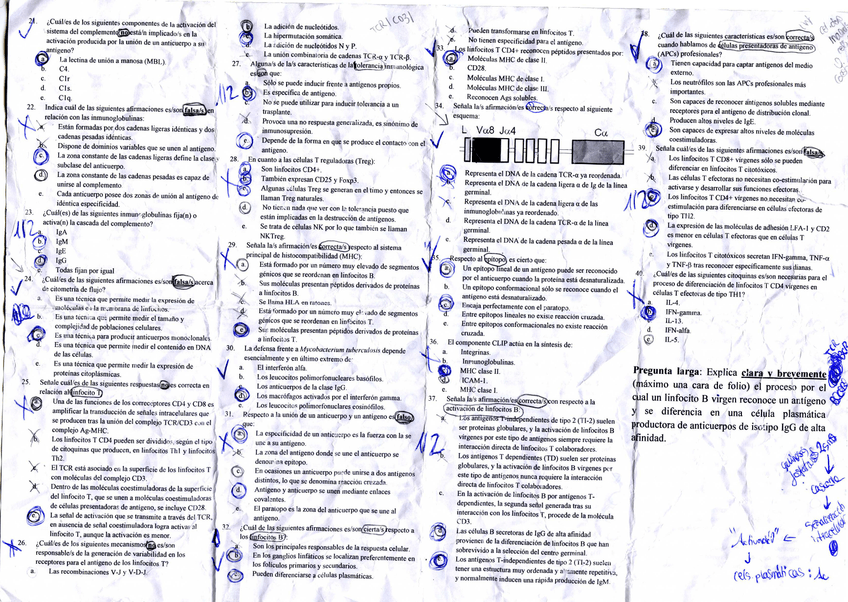 21. ¿Cuál/es de los siguientes componentes de la activación del
sistema del complemento no está/n implicado/s en la
activación producida por la unión de un anticuerpo a su
antígeno?
a. La lectina de unión a manosa (MBL).
b. C4.
c. C1r
d. C1s.
e. C1q.
22. Indica cuál de las siguientes afirmaciones es/son falsa/s en
relación con las inmunoglobulinas:
a. Están formadas por dos cadenas ligeras idénticas y dos
cadenas pesadas idénticas.
b. Dispone de dominios variables que se unen al antígeno.
c. La zona constante de las cadenas ligeras define la clase y
subclase del anticuerpo.
d. La zona constante de las cadenas pesadas es capaz de
unirse al complemento
e. Cada anticuerpo posee dos zonas de unión al antígeno de
idéntica especificidad.
23. ¿Cuál/es de las siguientes inmunoglobulinas fija(n) o
activa(n) la cascada del complemento?
a. IgA
b. IgM
c. IgE
d. IgG
e. Todas fijan por igual
24. ¿Cuál/es de las siguientes afirmaciones es/son falsa/s acerca
de citometría de flujo?
a. Es una técnica que permite medir la expresión de
moléculas en la membrana de linfocitos.
b. Es una técnica que permite medir el tamaño y
complejidad de poblaciones celulares.
c. Es una técnica para producir anticuerpos monoclonales.
d. Es una técnica que permite medir el contenido en DNA
de las células.
e. Es una técnica que permite medir la expresión de
proteínas citoplásmicas.
25. Señale cuál/es de las siguientes respuestas no es correcta en
relación al linfocito T:
a. Una de las funciones de los correceptores CD4 y CD8 es
amplificar la transducción de señales intracelulares que
se producen tras la unión del complejo TCR/CD3 con el
complejo Ag-MHC.
b. Los linfocitos T CD4 pueden ser divididos, según el tipo
de citoquinas que producen, en linfocitos Th1 y linfocitos
Th2.
c. El TCR está asociado en la superficie de los linfocitos T
con moléculas del complejo CD3.
d. Dentro de las moléculas coestimuladoras de la superficie
del linfocito T, que se unen a moléculas coestimuladoras
de células presentadoras de antígeno, se incluye CD28.
e. La señal de activación que se transmite a través del TCR,
en ausencia de señal coestimuladora logra activar al
linfocito T, aunque la activación es menor.
26. ¿Cuál/es de los siguientes mecanismos no es/son
responsable/s de la generación de variabilidad en los
receptores para el antígeno de los linfocitos T?
a. Las recombinaciones V-J y V-D-J.
TCR/CD3)
b. La adición de nucleótidos.
c. La hipermutación somática.
d. La adición de nucleótidos N y P.
e. La unión combinatoria de cadenas TCR-α y TCR-β.
27. Alguna/s de la/s características de la tolerancia inmunológica
es/son que:
a. Sólo se puede inducir frente a antígenos propios.
b. Es específica de antígeno.
c. No se puede utilizar para inducir tolerancia a un
trasplante.
d. Provoca una no respuesta generalizada, es sinónimo de
inmunosupresión.
e. Depende de la forma en que se produce el contacto con el
antígeno.
28. En cuanto a las células T reguladoras (Treg):
a. Son linfocitos CD4+.
b. También expresan CD25 y Foxp3.
c. Algunas células Treg se generan en el timo y entonces se
llaman Treg naturales.
d. No tienen nada que ver con la tolerancia puesto que
están implicadas en la destrucción de antígenos.
e. Se trata de células NK por lo que también se llaman
NKTreg.
29. Señala la/s afirmación/es correcta/s respecto al sistema
principal de histocompatibilidad (MHC):
a. Está formado por un número muy elevado de segmentos
génicos que se reordenan en linfocitos B.
b. Sus moléculas presentan péptidos derivados de proteínas
a linfocitos B.
c. Se llama HLA en ratones.
d. Está formado por un número muy elevado de segmentos
génicos que se reordenan en linfocitos T.
e. Sus moléculas presentan péptidos derivados de proteínas
a linfocitos T.
30. La defensa frente a Mycobacterium tuberculosis depende
esencialmente y en último extremo de:
a. El interferón alfa.
b. Los leucocitos polimorfonucleares basófilos.
c. Los anticuerpos de la clase IgG.
d. Los macrófagos activados por el interferón gamma.
e. Los leucocitos polimorfonucleares eosinófilos.
31. Respecto a la unión de un anticuerpo y un antígeno es falso
que:
a. La especificidad de un anticuerpo es la fuerza con la se
une a su antígeno.
b. La zona del antígeno donde se une el anticuerpo se
denomina epítopo.
c. En ocasiones un anticuerpo puede unirse a dos antígenos
distintos, lo que se denomina reacción cruzada.
d. Antígeno y anticuerpo se unen mediante enlaces
covalentes.
e. El paratopo es la zona del anticuerpo que se une al
antígeno.
32. ¿Cuál de las siguientes afirmaciones es/son cierta/s respecto a
los linfocitos B?:
a. Son los principales responsables de la respuesta celular.
b. En los ganglios linfáticos se localizan preferentemente en
los folículos primarios y secundarios.
c. Pueden diferenciarse a células plasmáticas.
d. Pueden transformarse en linfocitos T.
e. No tienen especificidad para el antígeno.
33. Los linfocitos T CD4+ reconocen péptidos presentados por:
a. Moléculas MHC de clase II.
b. CD28.
c. Moléculas MHC de clase I.
d. Moléculas MHC de clase III.
e. Reconocen Ags solubles.
34. Señala la/s afirmación/es correcta/s respecto al siguiente
esquema:
L Vα8 Jα4 Cα
a. Representa el DNA de la cadena TCR-α ya reordenada.
b. Representa el DNA de la cadena ligera α de la línea
germinal.
c. Representa el DNA de la cadena ligera α de las
inmunoglobulinas ya reordenado.
d. Representa el DNA de la cadena TCR-α de la línea
germinal.
e. Representa el DNA de la cadena pesada α de la línea
germinal.
35. Respecto al epítopo es cierto que:
a. Un epítopo lineal de un antígeno puede ser reconocido
por el anticuerpo cuando la proteína está desnaturalizada.
b. Un epítopo conformacional sólo se reconoce cuando el
antígeno está desnaturalizado.
c. Encaja perfectamente con el paratopo.
d. Entre epítopos lineales no existe reacción cruzada.
e. Entre epítopos conformacionales no existe reacción
cruzada.
36. El componente CLIP actúa en la síntesis de:
a. Integrinas.
b. Inmunoglobulinas.
c. MHC clase II.
d. ICAM-1.
e. MHC clase I.
37. Señala la/s afirmación/es correcta/s con respecto a la
activación de linfocitos B:
a. Los antígenos T-independientes de tipo 2 (TI-2) suelen
ser proteínas globulares, y la activación de linfocitos B
vírgenes por este tipo de antígenos siempre requiere la
interacción directa de linfocitos T colaboradores.
b. Los antígenos T dependientes (TD) suelen ser proteínas
globulares, y la activación de linfocitos B vírgenes por
este tipo de antígenos nunca requiere la interacción
directa de linfocitos T colaboradores.
c. En la activación de linfocitos B por antígenos T-
dependientes, la segunda señal generada tras su
interacción con los linfocitos T, procede de la molécula
CD3.
d. Las células B secretoras de IgG de alta afinidad
provienen de la diferenciación de linfocitos B que han
sobrevivido a la selección del centro germinal.
e. Los antígenos T-independientes de tipo 2 (TI-2) suelen
tener una estructura muy ordenada y altamente repetitiva,
y normalmente inducen una rápida producción de IgM.
38. Cuál de las siguientes características es/son correcta/s
cuando hablamos de células presentadoras de antígeno
(APCs) profesionales?
a. Tienen capacidad para captar antígenos del medio
externo.
b. Los neutrófilos son las APCs profesionales más
importantes.
c. Son capaces de reconocer antígenos solubles mediante
receptores para el antígeno de distribución clonal.
d. Producen altos niveles de IgE.
e. Son capaces de expresar altos niveles de moléculas
coestimuladoras.
39. Señala cuál/es de las siguientes afirmaciones es/son falsa/s:
a. Los linfocitos T CD8+ vírgenes sólo se pueden
diferenciar en linfocitos T citotóxicos.
b. Las células T efectoras no necesitan co-estimulación para
activarse y desarrollar sus funciones efectoras.
c. Los linfocitos T CD4+ vírgenes no necesitan co-
estimulación para diferenciarse en células efectoras de
tipo TH2.
d. La expresión de las moléculas de adhesión LFA-1 y CD2
es menor en células T efectoras que en células T
vírgenes.
e. Los linfocitos T citotóxicos secretan IFN-gamma, TNF-α
y TNF-β tras reconocer específicamente sus dianas.
40. ¿Cuál/es de las siguientes citoquinas es/son necesarias para el
proceso de diferenciación de linfocitos T CD4 vírgenes en
células T efectoras de tipo TH1?
a. IL-4.
b. IFN-gamma.
c. IL-13.
d. IFN-alfa.
e. IL-5.
Pregunta larga: Explica clara y brevemente
(máximo una cara de folio) el proceso por el
cual un linfocito B virgen reconoce un antígeno
y se diferencia en una célula plasmática
productora de anticuerpos de isotipo IgG de alta
afinidad.
TCR
cascada
Señalización
intracelular
"Activado"
céls. plasmáticas